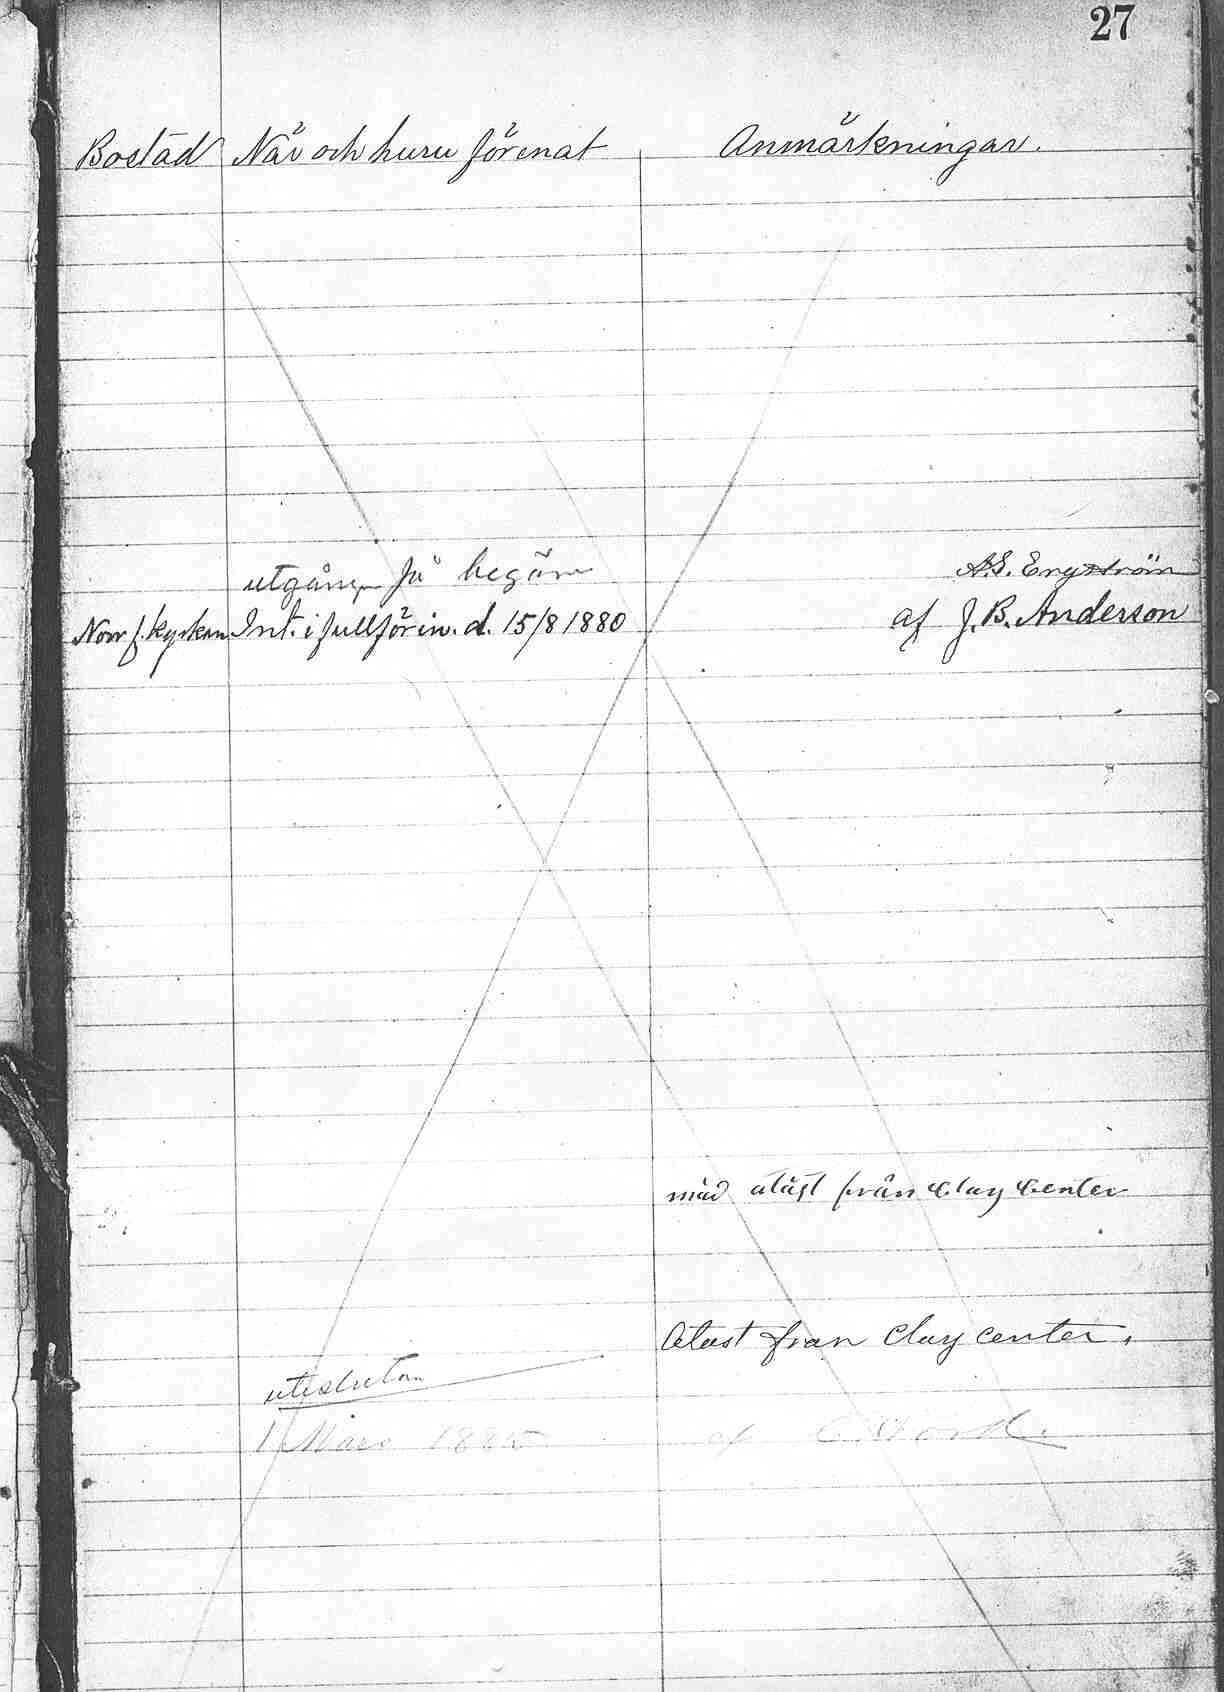 27
Bostad När och huru förenat Anmärkningar.
utgången på begäran A.G. Engström
Norr f. kyrkan Int. i full förin. d. 15/8 1880 af J. B. Anderson
med atäst från Clay Center
Atast fran Clay center,
utesluten
1 Mars 1885 af